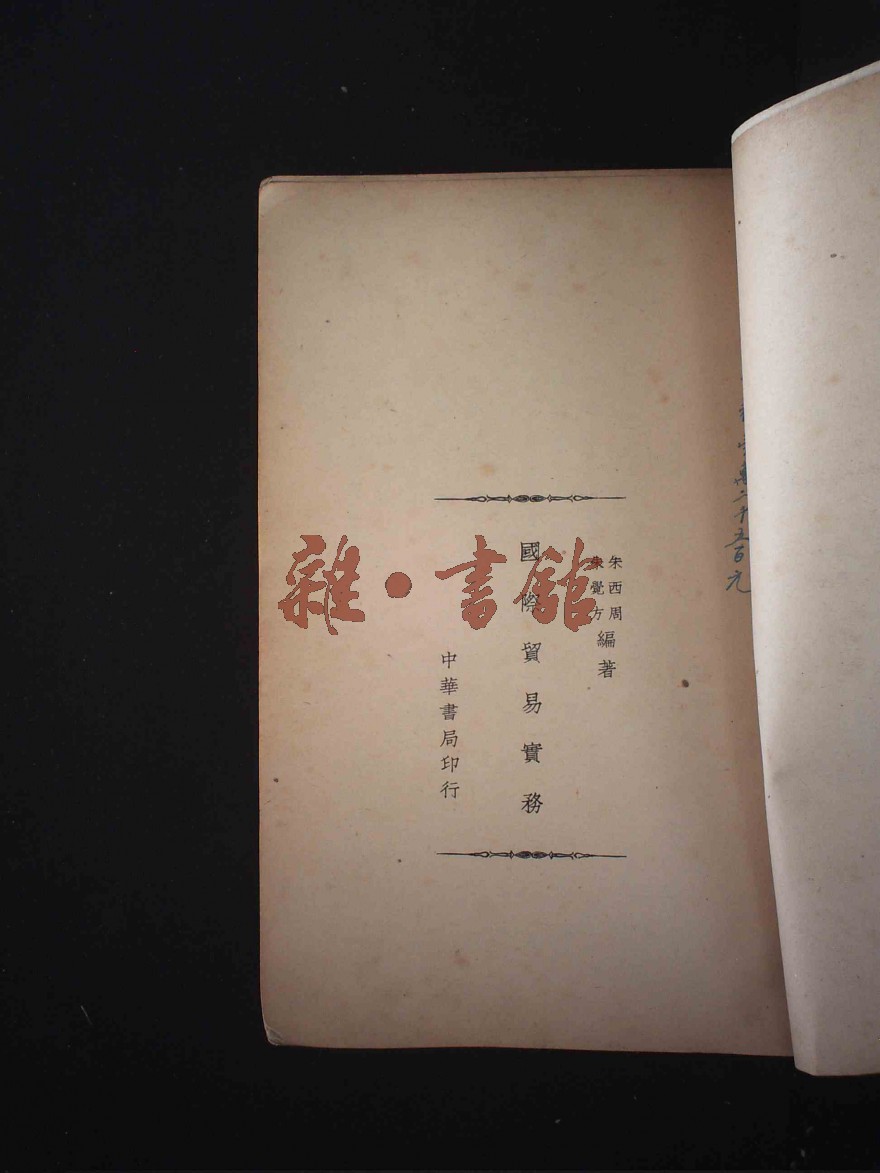 朱西周
朱覺方
編著
國際貿易實務
中華書局印行
二千五百元
雜·書館